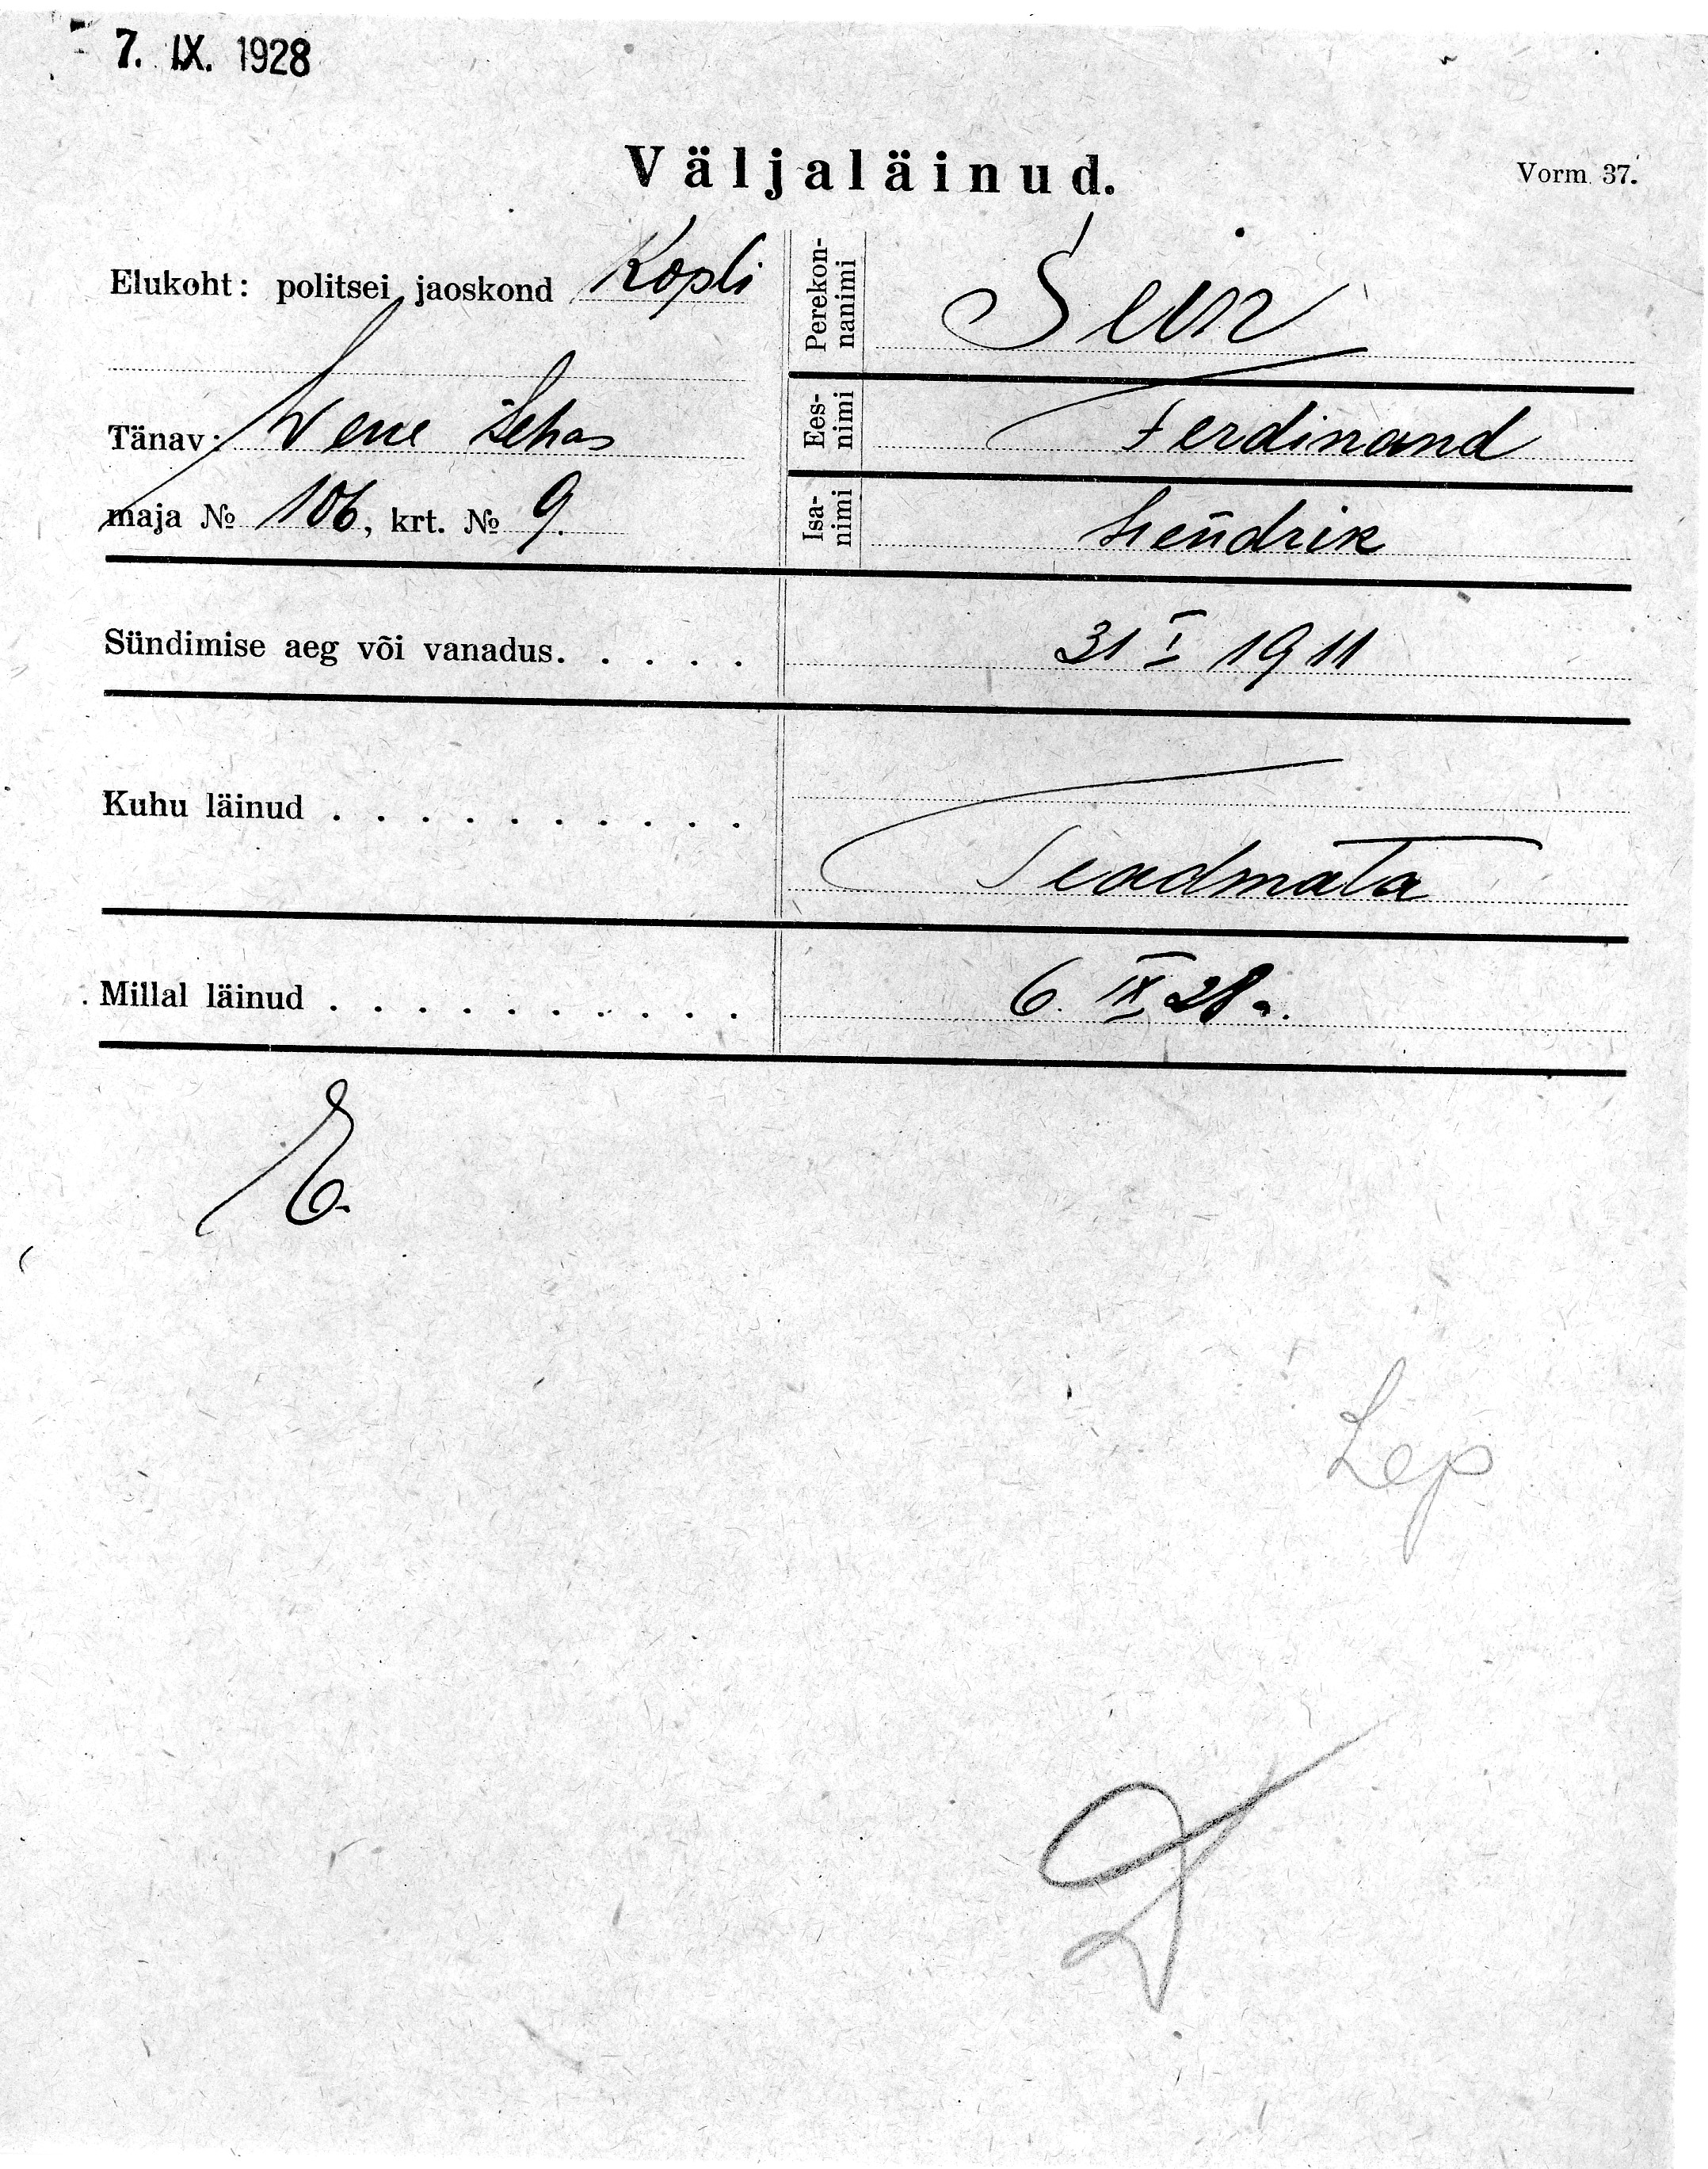 7. IX. 1928
Väljaläinud.
Vorm 37.
Elukoht: politsei jaoskond Kopli
Tänav: Vene
maja № 106, krt. № 9.
Perekon-
nanimi
Sein
Ees-
nimi
Ferdinand
Isa-
nimi
Hendrik
Sündimise aeg või vanadus. . . . . 31 I 1911
Kuhu läinud . . . . . . . . . .
Teadmata
Millal läinud . . . . . . . . . . 6. IX 28 a.
E.
Lep